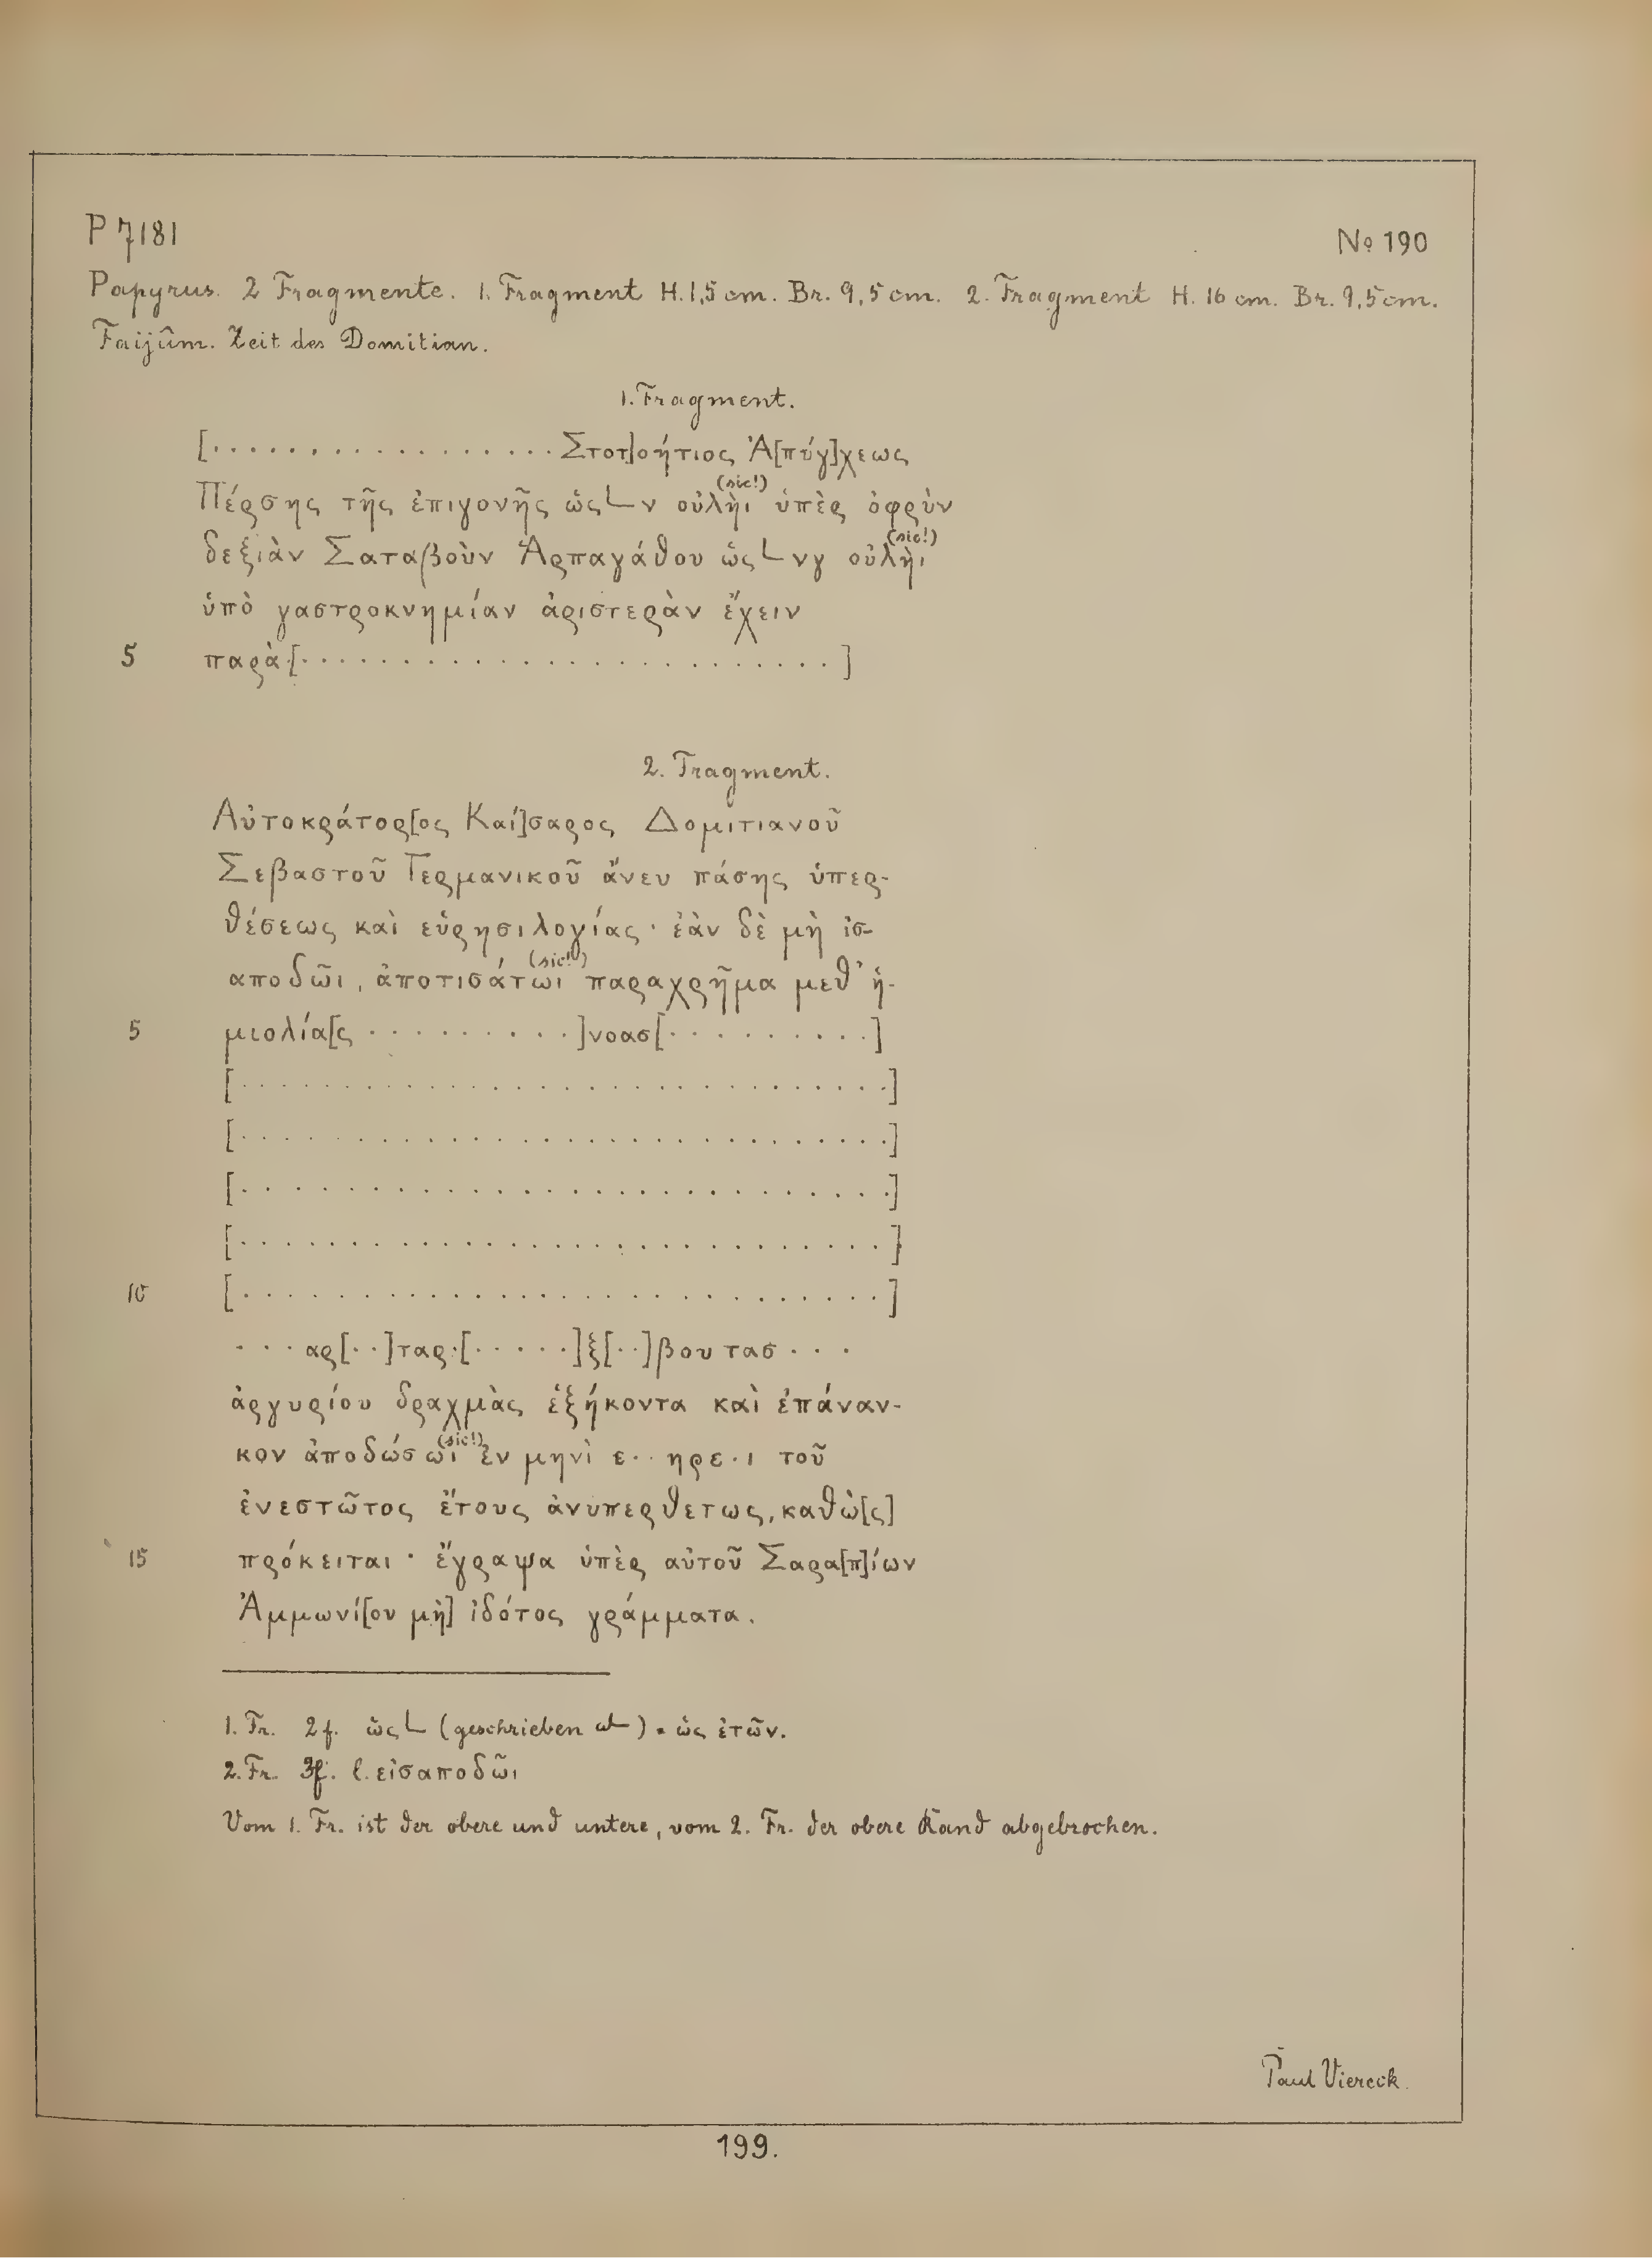 P 7181
No 190
Papyrus. 2 Fragmente. 1. Fragment H. 1,5 cm. Br. 9,5 cm. 2. Fragment H. 16 cm. Br. 9,5 cm.
Faijûm. Zeit des Domitian.
1. Fragment.
[. . . . . . . . . . . . . . . . . Στοτ]οήτιος Ἀ[πύγ]χεως
Πέρσης τῆς ἐπιγονῆς ὡς L ν οὐλὴι (sic!) ὑπὲρ ὀφρὺν
δεξιὰν Σαταβοὺν Ἁρπαγάθου ὡς L νγ οὐλὴι (sic!)
ὑπὸ γαστροκνημίαν ἀριστερὰν ἔχειν
5 παρὰ [. . . . . . . . . . . . . . . . . . . . . . . .]
2. Fragment.
Αὐτοκράτορ[ος Καί]σαρος Δομιτιανοῦ
Σεβαστοῦ Γερμανικοῦ ἄνευ πάσης ὑπερ-
θέσεως καὶ εὑρησιλογίας · ἐὰν δὲ μὴ ἰσ-
αποδῶι, ἀποτισάτωι (sic!) παραχρῆμα μεθ' ἡ-
5 μιολία[ς . . . . . . . . . .]νοασ[. . . . . . . . .]
[. . . . . . . . . . . . . . . . . . . . . . . . . . . .]
[. . . . . . . . . . . . . . . . . . . . . . . . . . . .]
[. . . . . . . . . . . . . . . . . . . . . . . . . . . .]
[. . . . . . . . . . . . . . . . . . . . . . . . . . . .]
10 [. . . . . . . . . . . . . . . . . . . . . . . . . . . .]
. . . αρ[. .]ταρ.[. . . . .]ξ[. .]βου τασ . . .
ἀργυρίου δραχμὰς ἑξήκοντα καὶ ἐπάναν-
κον ἀποδώσωι (sic!) ἐν μηνὶ ε . . ηρε . ι τοῦ
ἐνεστῶτος ἔτους ἀνυπερθετως, καθὼ[ς]
15 πρόκειται · ἔγραψα ὑπὲρ αὐτοῦ Σαρα[π]ίων
Ἀμμωνί[ου μὴ] ἰδότος γράμματα.
1. Fr. 2 f. ὡς L (geschrieben ωL) = ὡς ἐτῶν.
2. Fr. 3 f. l. εἰσαποδῶι
Vom 1. Fr. ist der obere und untere, vom 2. Fr. der obere Rand abgebrochen.
Paul Viereck.
199.